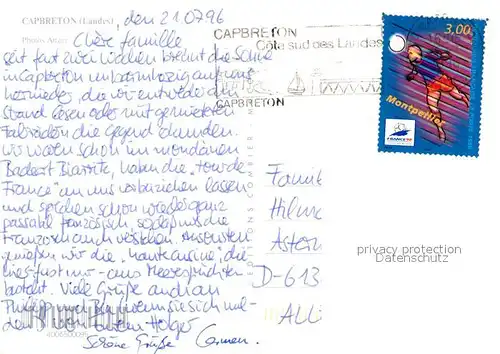 CAPBRETON (Landes), den 21.07.96
Photos Artaud
Chère famille
seit fast zwei Wochen brennt die Sonne
in Capbreton unbarmherzig auf uns
hernieder, die wir entweder den
Strand lösen oder mit gemieteten
Fahrrädern die Gegend
Wir waren schon im mondänen
Badeort Biarritz, haben die "tour de
France" an uns vorbeiziehen lassen
und sprechen schon wieder ganz
passabel französisch, sodaß uns die
Franzosen auch verstehen. Ansonsten
genießen wir die "haute cuisine", die
hier fast nur aus Meeresfrüchten
besteht. Viele Grüße auch an
Philipp und
Holger
Schöne Grüße Carmen.
CAPBRETON
Côte sud des Landes
CAPBRETON
3,00
Montpellier
FRANCE 98
EDITIONS COMBIER
Famil
Hilm
Astern
D-613
ALL
privacy protection
Datenschutz